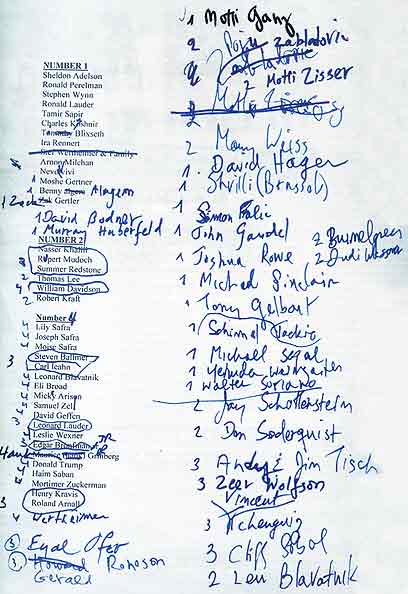 NUMBER 1
Sheldon Adelson
Ronald Perelman
Stephen Wynn
Ronald Lauder
Tamir Sapir
Charles Kushnir
Blixseth
Ira Rennert
Wertheimer & Family
Arnon Milchan
Moshe Gertner
1 Benny Alagem
Gertler
1 David Bodner
1 Murray Huberfeld
NUMBER 2
Nasser Khalili
Rupert Mudoch
Summer Redstone
2 Thomas Lee
4 William Davidson
2 Robert Kraft
Number 4
Lily Safra
Joseph Safra
Moise Safra
3 Steven Ballmer
Carl Icahn
Leonard Blavatnik
Eli Broad
Micky Arison
Samuel Zell
David Geffen
Leonard Lauder
Leslie Wexner
Edgar Bronfman JR
Hank Maurice Grinberg
Donald Trump
Haim Saban
Mortimer Zuckerman
Henry Kravis
3 Roland Arnall
4 Wertheimer
Eyal Ofer
Howard Ronson
Gerald
1 Motti Ganz
2 Zabladovic
2 Motti Zisser
2 Mony Weiss
1. David Hager
1
1 Simon Falic
1 John Gandel
1 Joshua Rowe
2
2
1 Michael Sinclair
1 Tony Gelbart
1 Schimmel Jackie
1 Michael Segal
1 Yehuda Weingarten
1 Walter Soriano
2 Jay Schottenstein
2 Don Soderquist
3 Jim Tisch
3 Zeev Wolfson
Vincent
3 Tchenguiz
3 Cliff Sobol
2 Len Blavatnik